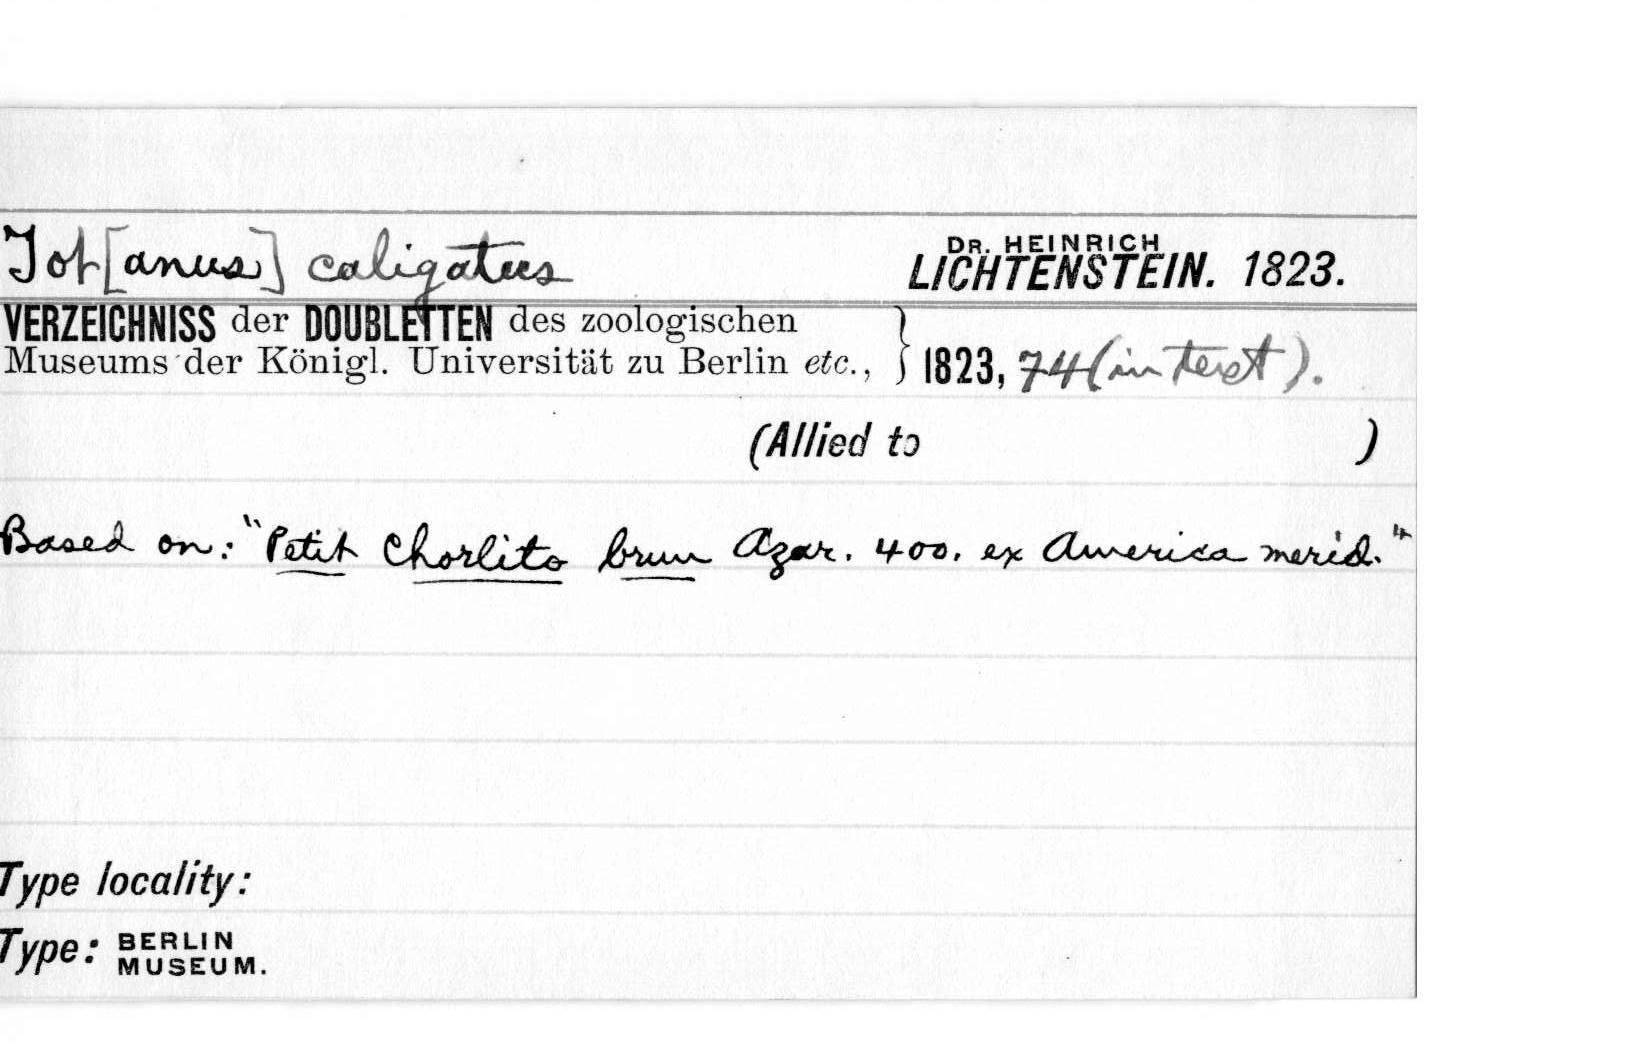 Tot[anus] caligatus
DR. HEINRICH
LICHTENSTEIN. 1823.
VERZEICHNISS der DOUBLETTEN des zoologischen
Museums der Königl. Universität zu Berlin etc., } 1823, 74 (in text).
(Allied to )
Based on: "Petit Chorlito brun Azar. 400. ex America merid."
Type locality:
Type: BERLIN
MUSEUM.